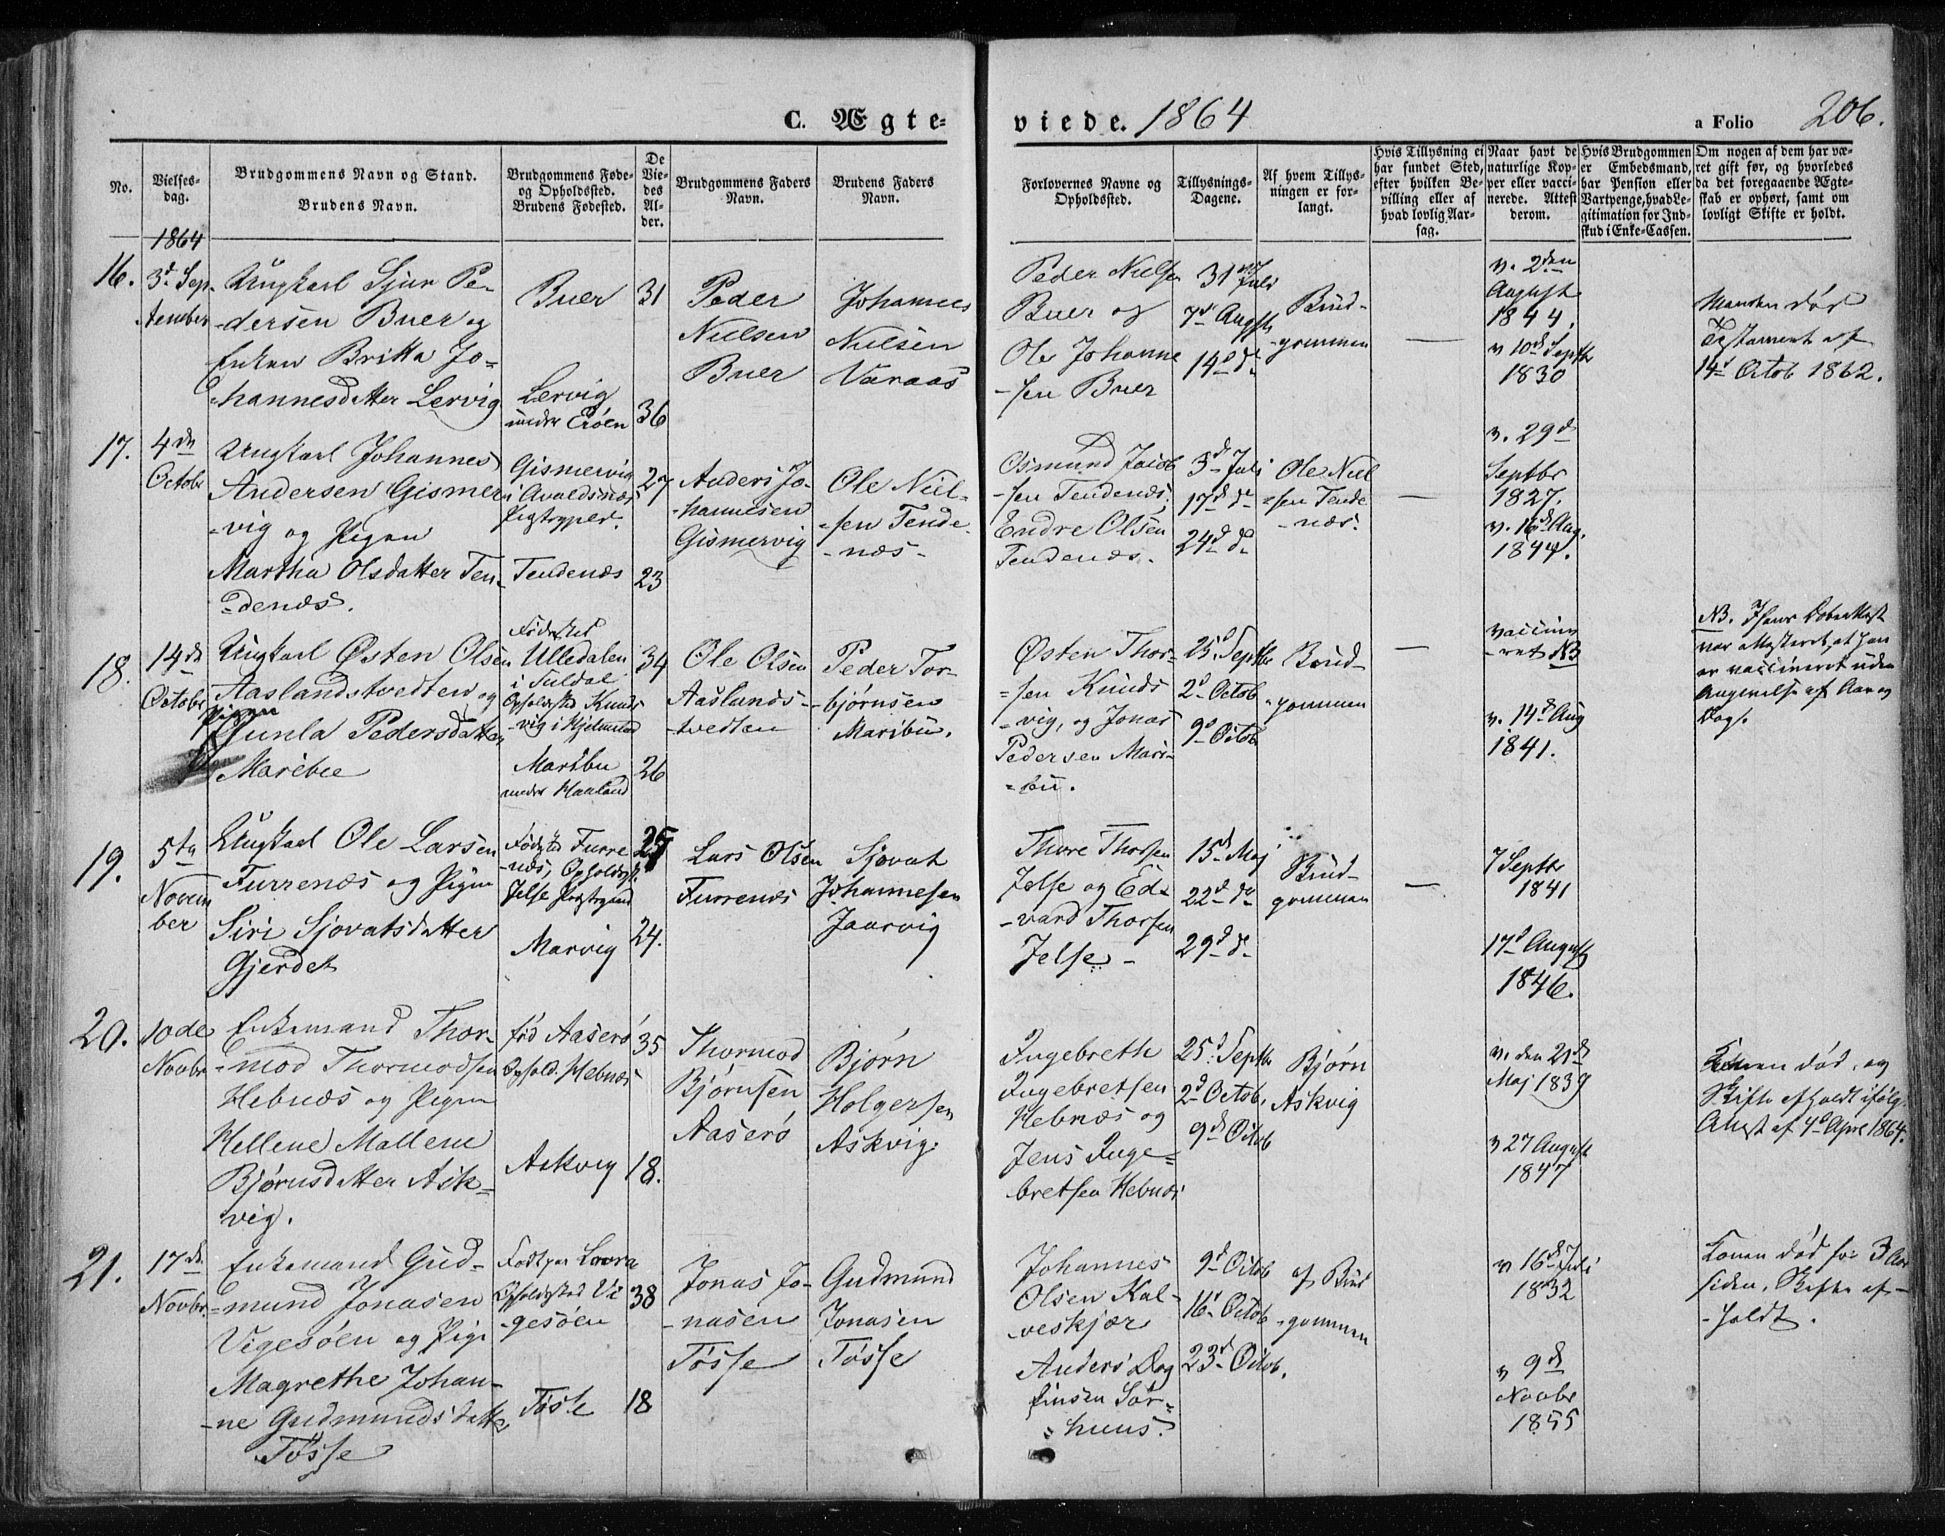 C. Ægte-
viede. 1864
a Folio 206.
No.
Vielses-
dag.
Brudgommens Navn og Stand.
Brudens Navn.
Brudgommens Føde-
og Opholdssted.
Brudens Fødested.
De
Vie-
des
Al-
der.
Brudgommens Faders
Navn.
Brudens Faders
Navn.
Forlovernes Navne og
Opholdssted.
Tillysnings-
Dagene.
Af hvem Tillys-
ningen er for-
langt.
Hvis Tillysning ei
har fundet Sted,
efter hvilken Be-
villing eller af
hvad lovlig Aar-
sag.
Naar havt de
naturlige Kop-
per eller vacci-
nerede. Attest
derom.
Hvis Brudgommen
er Embedsmand,
har Pension eller
Vartpenge, hvad Le-
gitimation for Ind-
skud i Enke-Cassen.
Om nogen af dem har væ-
ret gift før, og hvorledes
da det foregaaende Ægte-
skab er ophørt, samt om
lovligt Skifte er holdt.
1864
16.
3d Sep-
tember
Ungkarl Sjur Pe-
-dersen Buer og
Enken Britta Jo-
-hannesdatter Lervig
Buer
Lervig
under Erøen
31
36
Peder
Nielsen
Buer
Johannes
Nielsen
Varaas
Peder Nielsen
Buer og
Ole Johanne
-sen Buer
31 Juli
7d Augst
14d do
Brud-
-gommen
—
v. 2den
August
1844.
v 10d Septbr
1830
Manden død
Testament af
14d Octob 1862.
17.
4de
Octobr
Ungkarl Johannes
Andersen Gismer
-vig og Pigen
Martha Olsdatter Ten-
-denæs.
Gismervig
i Avaldsnæs
Prgtrgped.
Tendenæs
27
23
Anders Jo-
-hannesen
Gismervig
Ole Niel-
-sen Tende
-næs-
Osmund Jacob
-sen Tendenæs,
Endre Olsen
Tendenæs.
3d Juli
17d do
24d do
Ole Niel
-sen Tende
-næs.
—
v. 29d
Septbr
1827.
v. 16d Aug.
1844.
18.
14de
Octobr
Ungkarl Østen Olsen
Aaslandstvedten og
Pigen
Gunla Pedersdatter
Maribu
Fødested
Ulledalen
i Suldal
Opholdssted Knuds
-vig i Hjelmeland
Maribu
under Haaland
34
26
Ole Olsen
Aaslands-
-tvedten
Peder Tor-
-bjørnsen
Maribu.
Østen Thor-
-sen Knuds
-vig, og Jonas
Pedersen Mari-
-bu.
25d Septbr
2d Octob
9d Octob
Brud-
-gommen
—
vaccine
-ret NB
v. 14d Aug
1841.
NB. I hans Dobeattest
var attesteret, at han
er vaccineret uden
Angivelse af Aar og
Dag.
19.
5te
Novem
ber
Ungkarl Ole Larsen
Furrenæs og Pigen
Siri Sjovatsdatter
Gjerdet
Fødested Furre
-næs, Opholdsst.
Jelse Præstegjeld
Marvig
24.
Lars Olsen
Furrenæs
Sjovat
Johannesen
Jaarvig
Thore Thorsen
Jelse og Ed-
-vard Thorsen
Jelse-
15d Maj
22d do
29d do
Brud-
gommen
—
7 Septbr
1841
17d August
1846.
20.
10de
Novbr
Enkemand Thor-
-mod Thormodsen
Hebnæs og Pigen
Hellene Mallene
Bjørnsdatter Ask-
-vig.
fød Aaserø
Ophold. Hebnæs
Askvig
35
18.
Thormod
Bjørnsen
Aaserø
Bjørn
Holgersen
Askvig
Ingebreth
Ingebretsen
Hebnæs og
Jens Inge-
bretsen Hebnæs
25d Septbr
2d Octob.
9de Octob
Bjørn
Askvig
v. den 21d
Maj 1839
v 27 August
1847
Konen død, og
Skifte afholdt ifølg.
Attest af 4d Apre 1864.
21.
17de
Novbr.
Enkemand Gud-
-mund Jonasen
Vigesøen og Pige
Magrethe Johan-
-ne Gudmundsdatter
Tøsse
Født paa Lovra
Opholdssted Vi
-gesøen
Tøsse
38
18
Jonas Jo-
-nasen
Tøsse
Gudmund
Jonasen
Tøsse
Johannes
Olsen Kal-
-veskjær
Anders Dag
finsen Sør-
-huus.
9d Octob
16d Octob
23d Octob.
af Brud
-gommen
v 16d Juli
1832
v 9d
Novbr
1855
Konen død for 3 Aar
siden, Skifte af-
-holdt.